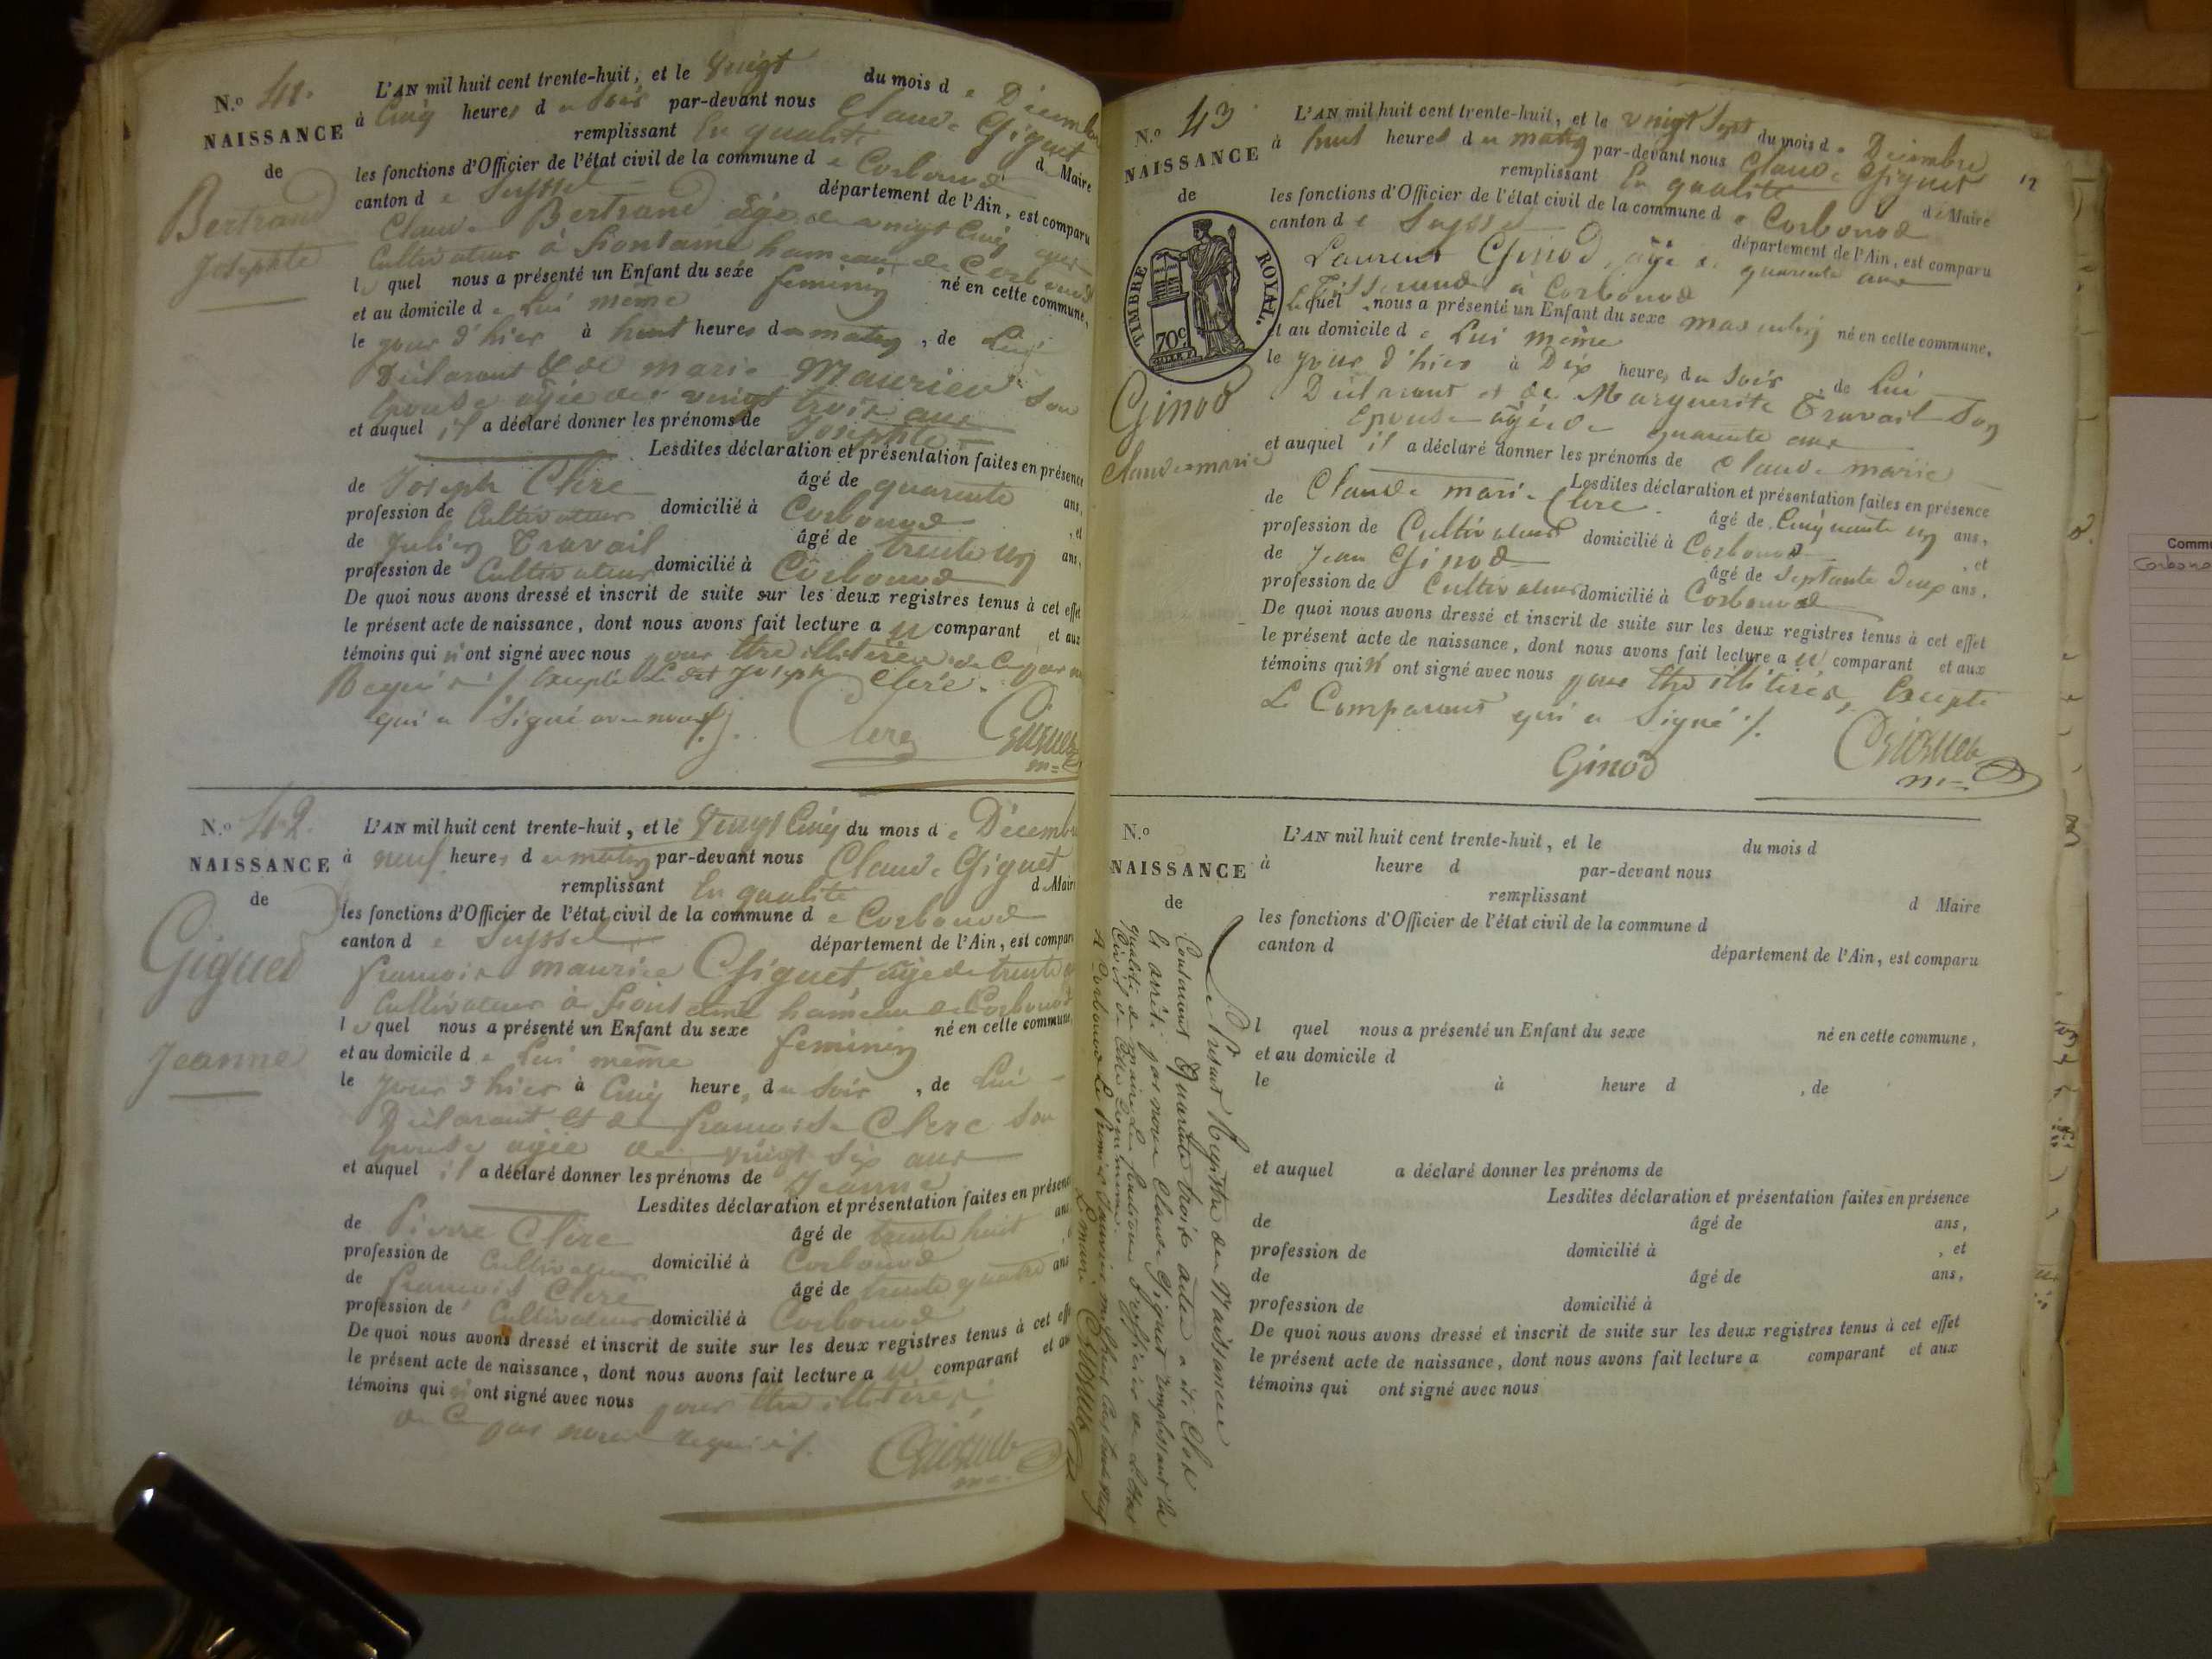 N.º 41.
NAISSANCE
de
Bertrand
Josephte
L'AN mil huit cent trente-huit, et le Vingt du mois de Décembre
à Cinq heures du soir par-devant nous Claude Giguet
remplissant en qualité de Maire
les fonctions d'Officier de l'état civil de la commune de Corbonod
canton de Seyssel département de l'Ain, est comparu
Claude Bertrand âgé de vingt cinq ans
Cultivateur à fontaine hameau de Corbonod
lequel nous a présenté un Enfant du sexe feminin né en cette commune,
et au domicile de Lui même
le jour d'hier à huit heures du matin, de Lui
Déclarant & de marie Maurier son
épouse agée de vingt trois ans
et auquel il a déclaré donner les prénoms de Josephte
Lesdites déclaration et présentation faites en présence
de Joseph Clerc âgé de quarente ans,
profession de Cultivateur domicilié à Corbonod, et
de Julien Travail âgé de trente un ans,
profession de Cultivateur domicilié à Corbonod
De quoi nous avons dressé et inscrit de suite sur les deux registres tenus à cet effet
le présent acte de naissance, dont nous avons fait lecture au comparant et aux
témoins qui n'ont signé avec nous pour être illitérés de ce par nous
Requis ./. Excepté le dit Joseph Clerc.
qui a signé avec nous ./.
Clerc Giguet
m=
N.º 42.
NAISSANCE
de
Giguet
Jeanne
L'AN mil huit cent trente-huit, et le Vingt Cinq du mois de Décembre
à neuf heures du matin par-devant nous Claude Giguet
remplissant en qualité de Maire
les fonctions d'Officier de l'état civil de la commune de Corbonod
canton de Seyssel département de l'Ain, est comparu
françois maurice Giguet, âgé de trente
Cultivateur à fontaine hameau de Corbonod
lequel nous a présenté un Enfant du sexe feminin né en cette commune,
et au domicile de Lui même
le Jour d'hier à Cinq heures du soir, de Lui
Déclarant et de françoise Clerc son
épouse agée de vingt six ans
et auquel il a déclaré donner les prénoms de Jeanne
Lesdites déclaration et présentation faites en présence
de Pierre Clerc âgé de trente huit ans
profession de Cultivateur domicilié à Corbonod
de françois Clerc âgé de trente quatre ans
profession de Cultivateur domicilié à Corbonod
De quoi nous avons dressé et inscrit de suite sur les deux registres tenus à cet effet
le présent acte de naissance, dont nous avons fait lecture au comparant et aux
témoins qui n'ont signé avec nous pour être illitérés,
de ce par nous requis ./.
Giguet
N.º 43
NAISSANCE
de
TIMBRE ROYAL.
70c
Ginod
Claude marie
12
L'AN mil huit cent trente-huit, et le vingt sept du mois de Décembre
à huit heures du matin par-devant nous Claude Giguet
remplissant En qualité de Maire
les fonctions d'Officier de l'état civil de la commune de Corbonod
canton de Seyssel département de l'Ain, est comparu
Laurent Ginod, âgé de quarente ans
Tisserand à Corbonod
Lequel nous a présenté un Enfant du sexe masculin né en cette commune,
et au domicile de Lui même
le jour d'hier à Dix heures du soir, de Lui
Déclarant et de Marguerite Travail son
épouse agée de quarente ans
et auquel il a déclaré donner les prénoms de Claude marie
Lesdites déclaration et présentation faites en présence
de Claude marie Clerc âgé de Cinquante un ans,
profession de Cultivateur domicilié à Corbonod, et
de Jean Ginod âgé de septante Deux ans,
profession de Cultivateur domicilié à Corbonod
De quoi nous avons dressé et inscrit de suite sur les deux registres tenus à cet effet
le présent acte de naissance, dont nous avons fait lecture au comparant et aux
témoins qui n'ont signé avec nous pour être illitérés, Excepté
Le Comparant qui a signé ./.
Ginod Giguet
m=
N.º
NAISSANCE
de
L'AN mil huit cent trente-huit, et le du mois d
à heure d par-devant nous
remplissant d Maire
les fonctions d'Officier de l'état civil de la commune d
canton d département de l'Ain, est comparu
l quel nous a présenté un Enfant du sexe né en cette commune,
et au domicile d
le à heure d , de
et auquel a déclaré donner les prénoms de
Lesdites déclaration et présentation faites en présence
de âgé de ans,
profession de domicilié à , et
de âgé de ans,
profession de domicilié à
De quoi nous avons dressé et inscrit de suite sur les deux registres tenus à cet effet
le présent acte de naissance, dont nous avons fait lecture a comparant et aux
témoins qui ont signé avec nous
Le Présent Registre des Naissances
Contenant Quarante trois actes a été Clos
et arrêté par nous Claude Giguet remplissant la
qualité de maire les fonctions d'officier de L'état
Civil de cette Commune.
A Corbonod Le Premier Janvier mil huit Cent trente neuf
Le maire Giguet
Comm
Corbono